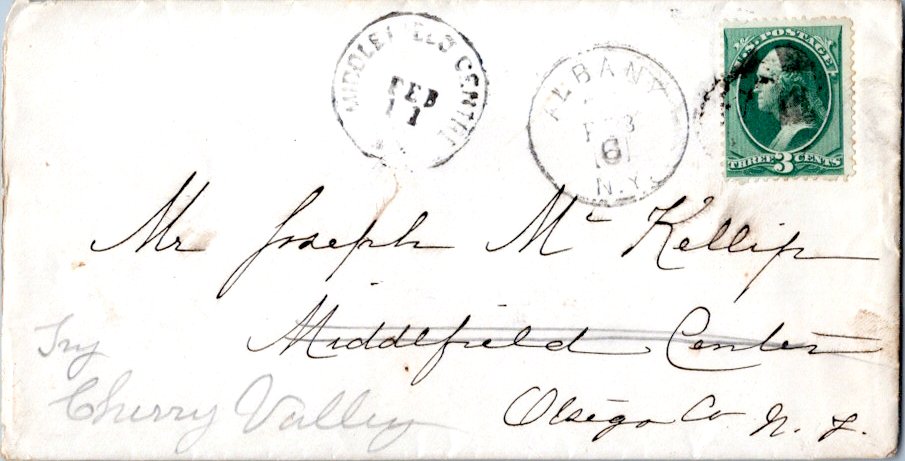 MIDDLEFIELD CENTRE
FEB
11
ALBANY
FEB
6
N.Y.
U.S. POSTAGE
THREE 3 CENTS
Mr Joseph Mc Killip
Middlefield Center
Otsego Co N. Y.
Try
Cherry Valley